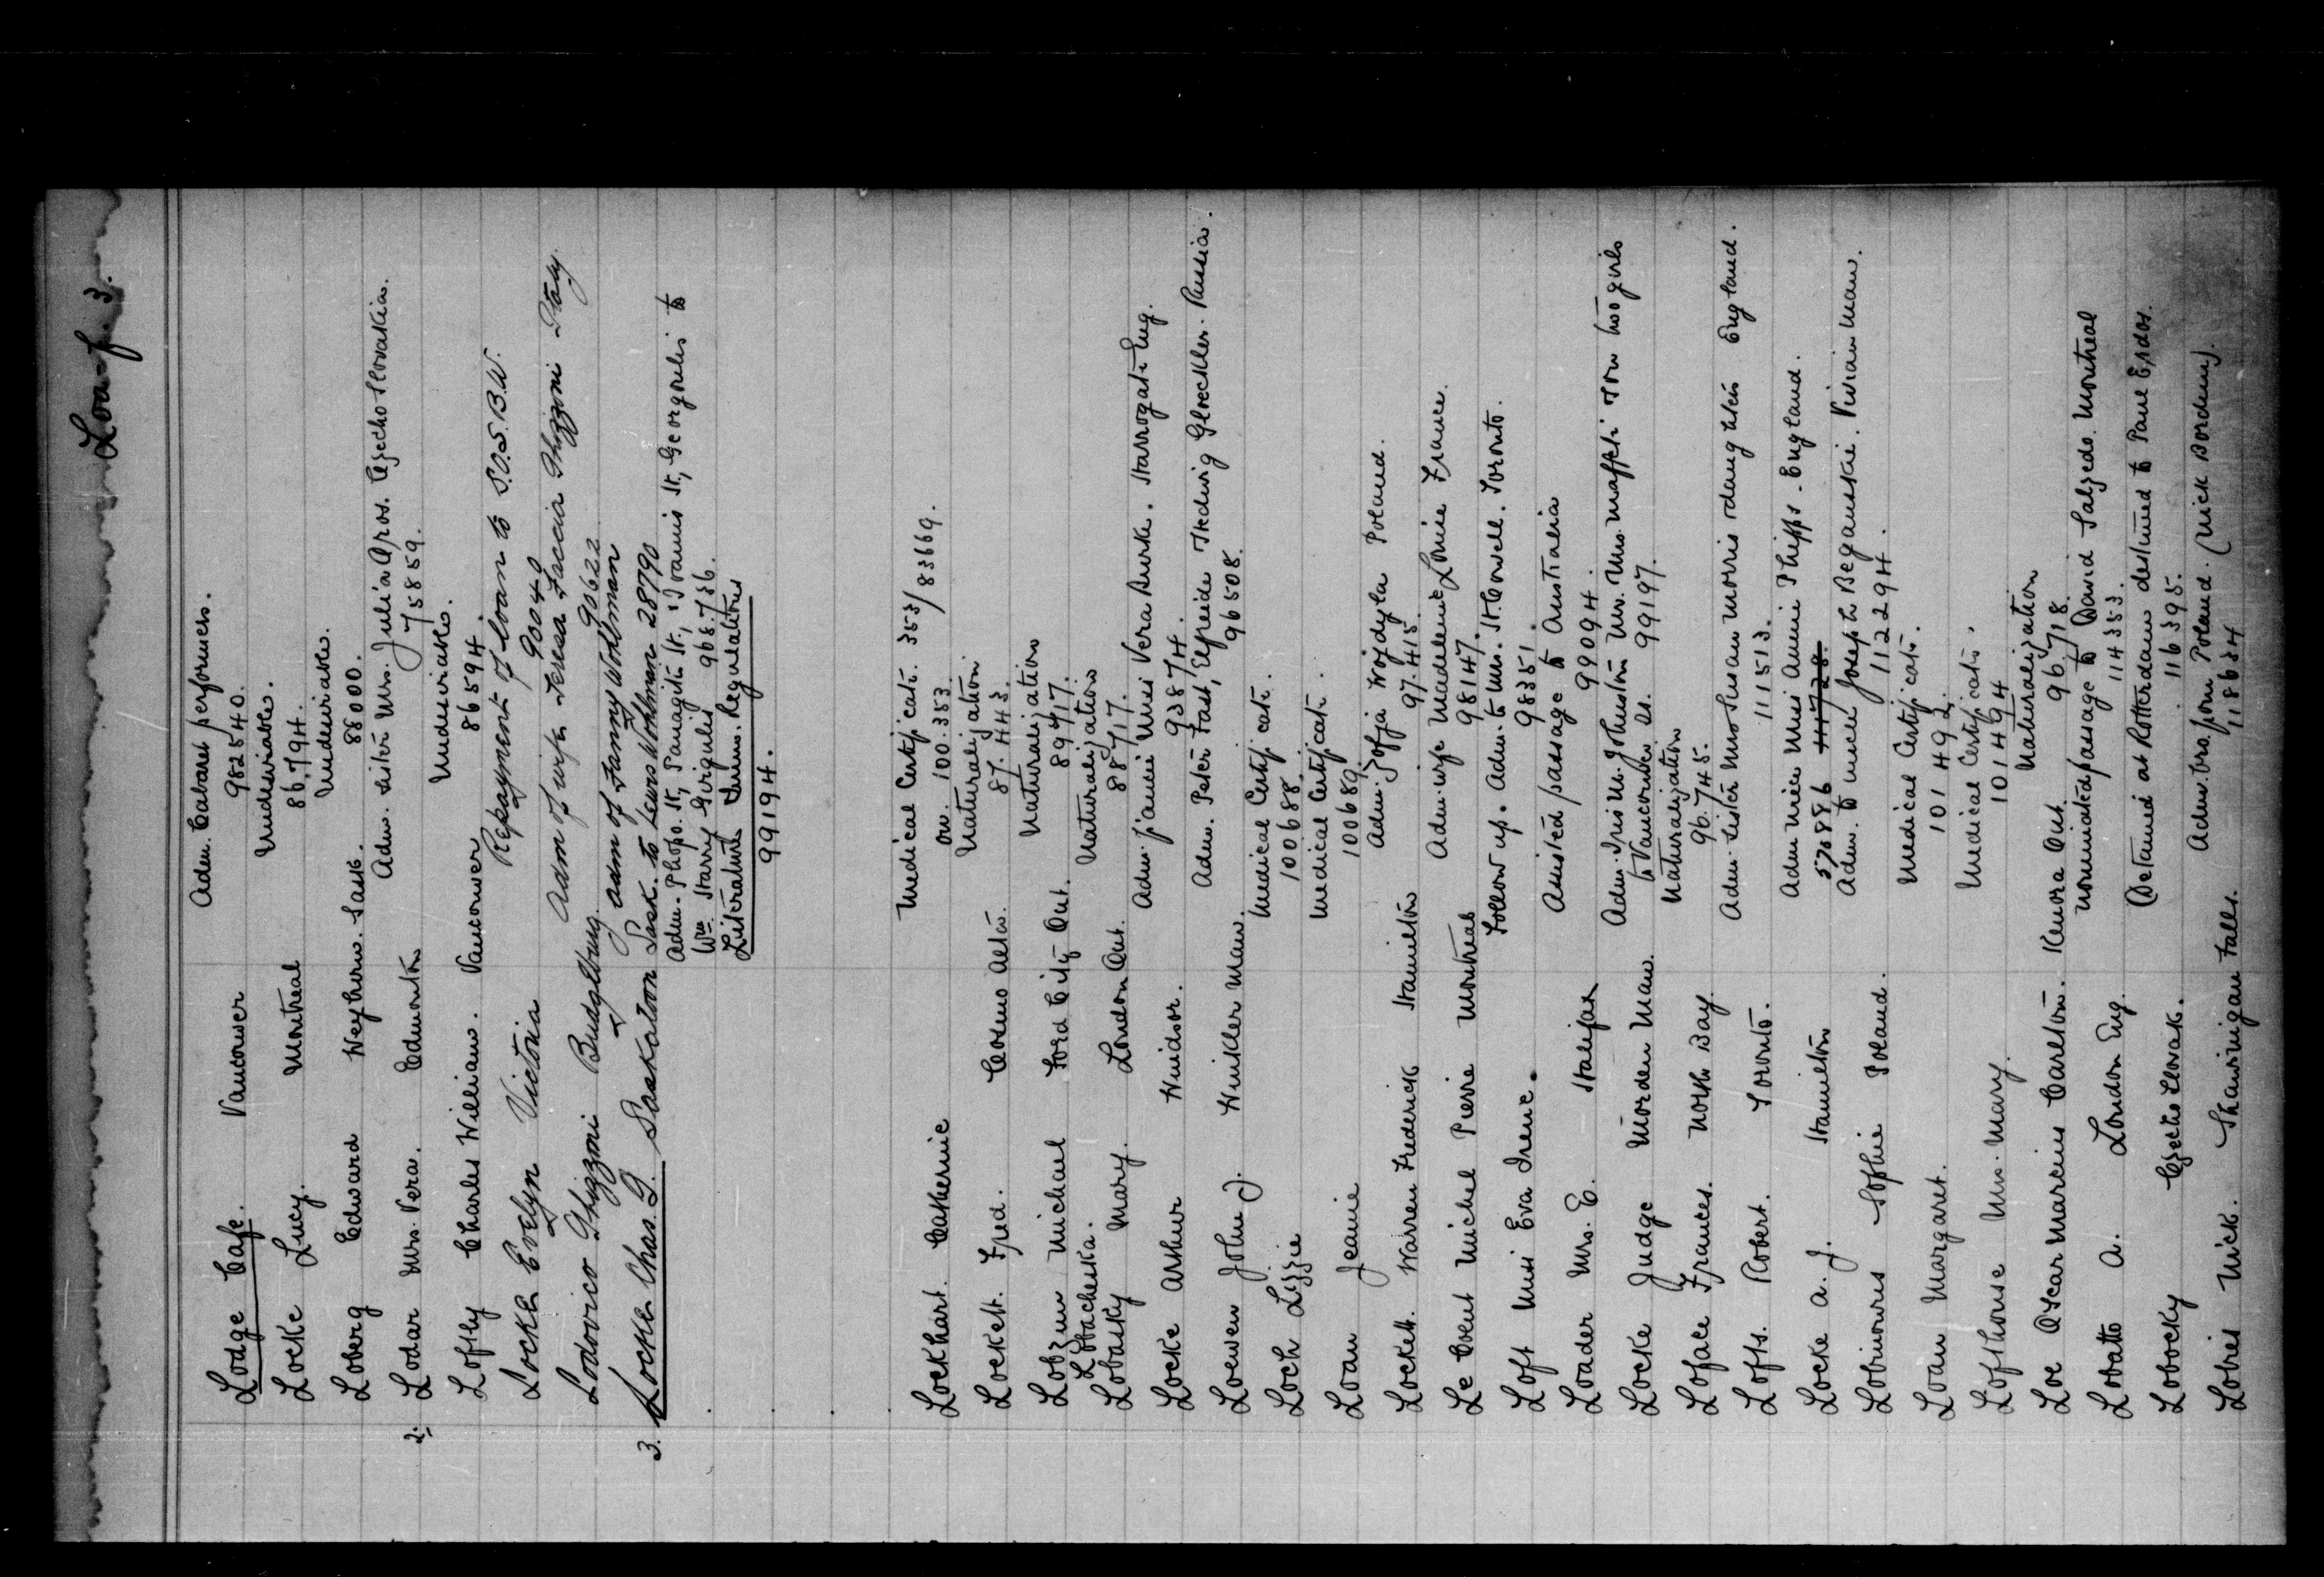 Loa-f. 3.
Lodge Cafe. Vancouver Adm. Cabaret performers.
982540.
Locke Lucy. Montreal Undesirables.
86794.
Loberg Edward Weyburn. Sask. Undesirables.
88000.
2. Lodar Mrs. Vera. Edmonton Adm. sister Mrs. Julia Apos. Czecho Slovakia.
75859.
Loftly Charles William. Vancouver Undesirables.
86594.
Locke Evelyn Victoria Repayment of loan to S.O.S.B.W.
90040
Lodovico Ghizzoni Adm of wife Teresa Faccia Ghizzoni Italy.
90622
3. Locke Chas. Q. Saskatoon Sask. Adm of Fanny Wohlman
to Lewis Wohlman 28790
Adm. Phops. St, Panagiti St., Ioannis St, Georgoulis to
Wm. Harry Girgulis 968.736.
Literature Imm. Regulations
99194.
Lockhart. Catherine Medical Certificate. 353/83669.
on. 100.353.
Lockett. Fred. Cosmo Alta. Naturalization.
87.443.
Lobzun Michael Ford City Ont. Naturalization
89417.
Lobacheska.
Lobasky Mary. London Ont. Naturalization
88717.
Locke Arthur Windsor. Adm. fiancee Miss Vera Burke. Harrogate Eng.
93874.
Loewen John J. Winkler Man. Adm. Peter Fast, Elfreide Hedwig Gloeckler. Russia.
96508.
Loch Lizzie Medical Certificate.
100688.
Loan Jeanie Medical Certificate.
100689.
Lockett. Warren Frederick Hamilton Adm. Zofja Wojdyla Poland.
97.415.
Le Coent Michel Pierre Montreal Adm. wife Madeleine Louise France.
98147.
Loft Miss Eva Irene. Follow up. Adm. to Mrs. H. Cowell. Toronto.
98351.
Loader Mrs. E. Halifax Assisted passage to Australia
99094.
Locke Judge Morden Man. Adm. Iris M. Johnston Mr. Mrs. Maffeti & two girls
to Vancouver. 99197.
Loface Frances. North Bay. Naturalization
96.745.
Lofts. Robert. Toronto. Adm. sister Mrs Susan Morris & daughter England.
111513.
Locke A. J. Hamilton Adm niece Miss Annie Phipps. England.
570886 11728.
Lobinowes Sophie Poland. Adm. to uncle Joseph Beganskie. Vivian Man.
112294.
Loan Margaret. Medical Certificate.
101492.
Lofthouse Mrs. Mary. Medical Certificate.
101494
Loe Oscar Marcius Carlton. Kenora Ont. Naturalization
96718.
Lobatto A. London Eng. Nominated passage to David Salzedo. Montreal
114353.
Lobocky Czecho Slovak. Detained at Rotterdam destined to Paul Erdos.
116395.
Lobies Nick. Shawinigan Falls. Adm. bro. from Poland. (Nick Borden).
118634